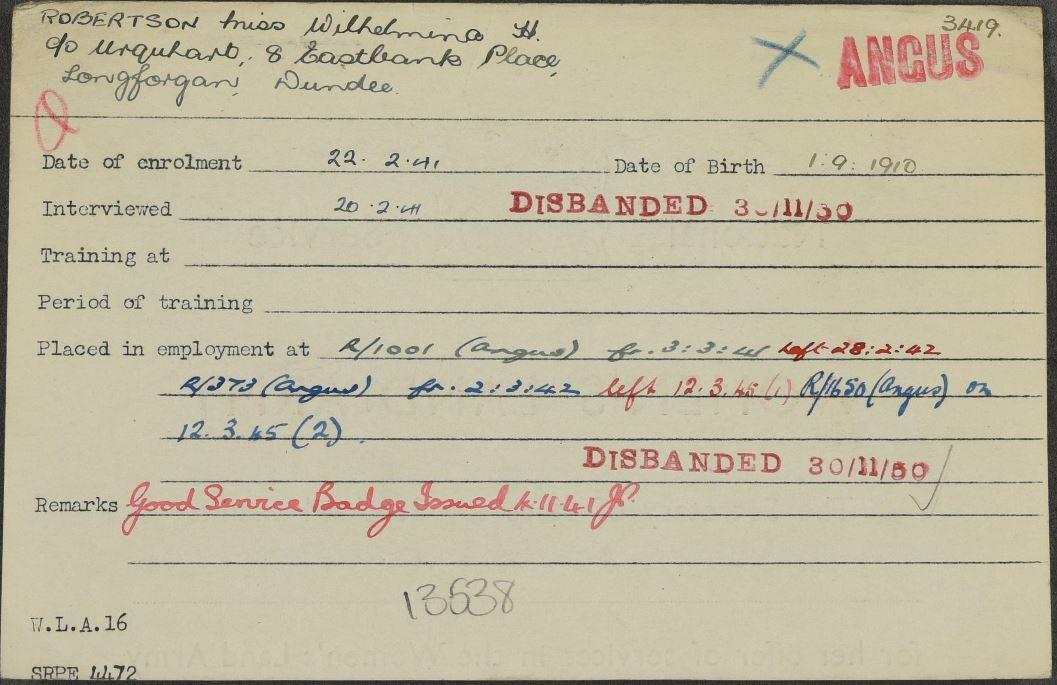 3419.
ROBERTSON Miss Wilhelmina H.
c/o Urquhart, 8 Eastbank Place,
Longforgan, Dundee.
ANGUS
Date of enrolment 22. 2.41 Date of Birth 1.9.1910
Interviewed 20.2.41 DISBANDED 30/11/50
Training at
Period of training
Placed in employment at R/1001 (Angus) fr. 3:3:41 left 28:2:42
R/373 (Angus) fr. 2:3:42 left 12.3.45 (1) R/1650 (Angus) on
12.3.45 (2).
DISBANDED 30/11/50
Remarks Good Service Badge Issued 11.41
13538
W.L.A.16
SRPE 4472